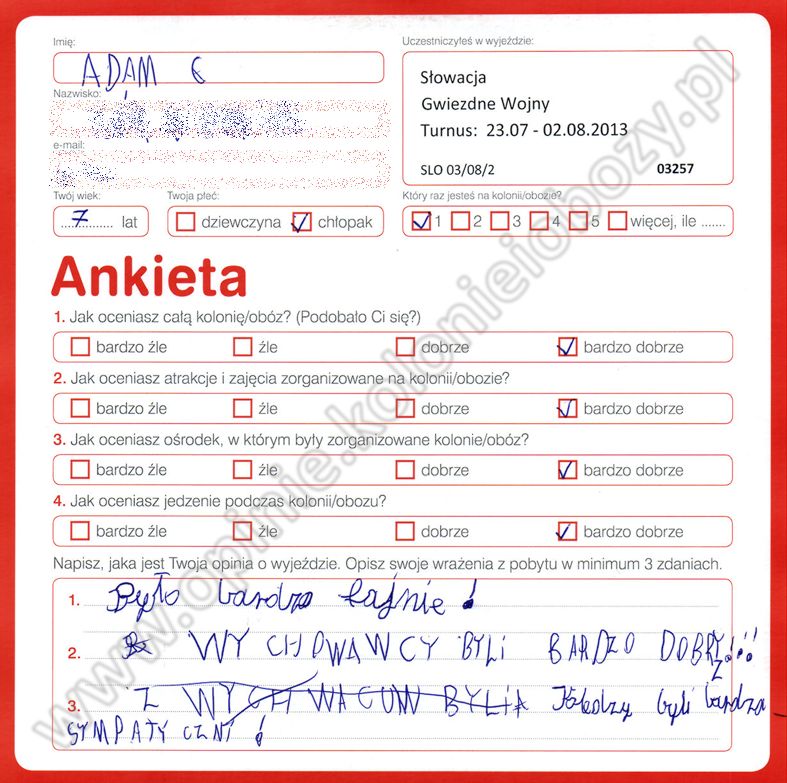 Imię:
ADAM
Nazwisko:
e-mail:
Twój wiek:
7 lat
Twoja płeć:
dziewczyna chłopak
Uczestniczyłeś w wyjeździe:
Słowacja
Gwiezdne Wojny
Turnus: 23.07 - 02.08.2013
SLO 03/08/2 03257
Który raz jesteś na kolonii/obozie?
1 2 3 4 5 więcej, ile .......
Ankieta
1. Jak oceniasz całą kolonię/obóz? (Podobało Ci się?)
bardzo źle źle dobrze bardzo dobrze
2. Jak oceniasz atrakcje i zajęcia zorganizowane na kolonii/obozie?
bardzo źle źle dobrze bardzo dobrze
3. Jak oceniasz ośrodek, w którym były zorganizowane kolonie/obóz?
bardzo źle źle dobrze bardzo dobrze
4. Jak oceniasz jedzenie podczas kolonii/obozu?
bardzo źle źle dobrze bardzo dobrze
Napisz, jaka jest Twoja opinia o wyjeździe. Opisz swoje wrażenia z pobytu w minimum 3 zdaniach.
1. Było bardzo fajnie!
2. WYCHOWAWCY BYLI BARDZO DOBRZY!!!
3. byli bardzo
SYMPATYCZNI!
www.opinie.kolonieiobozy.pl